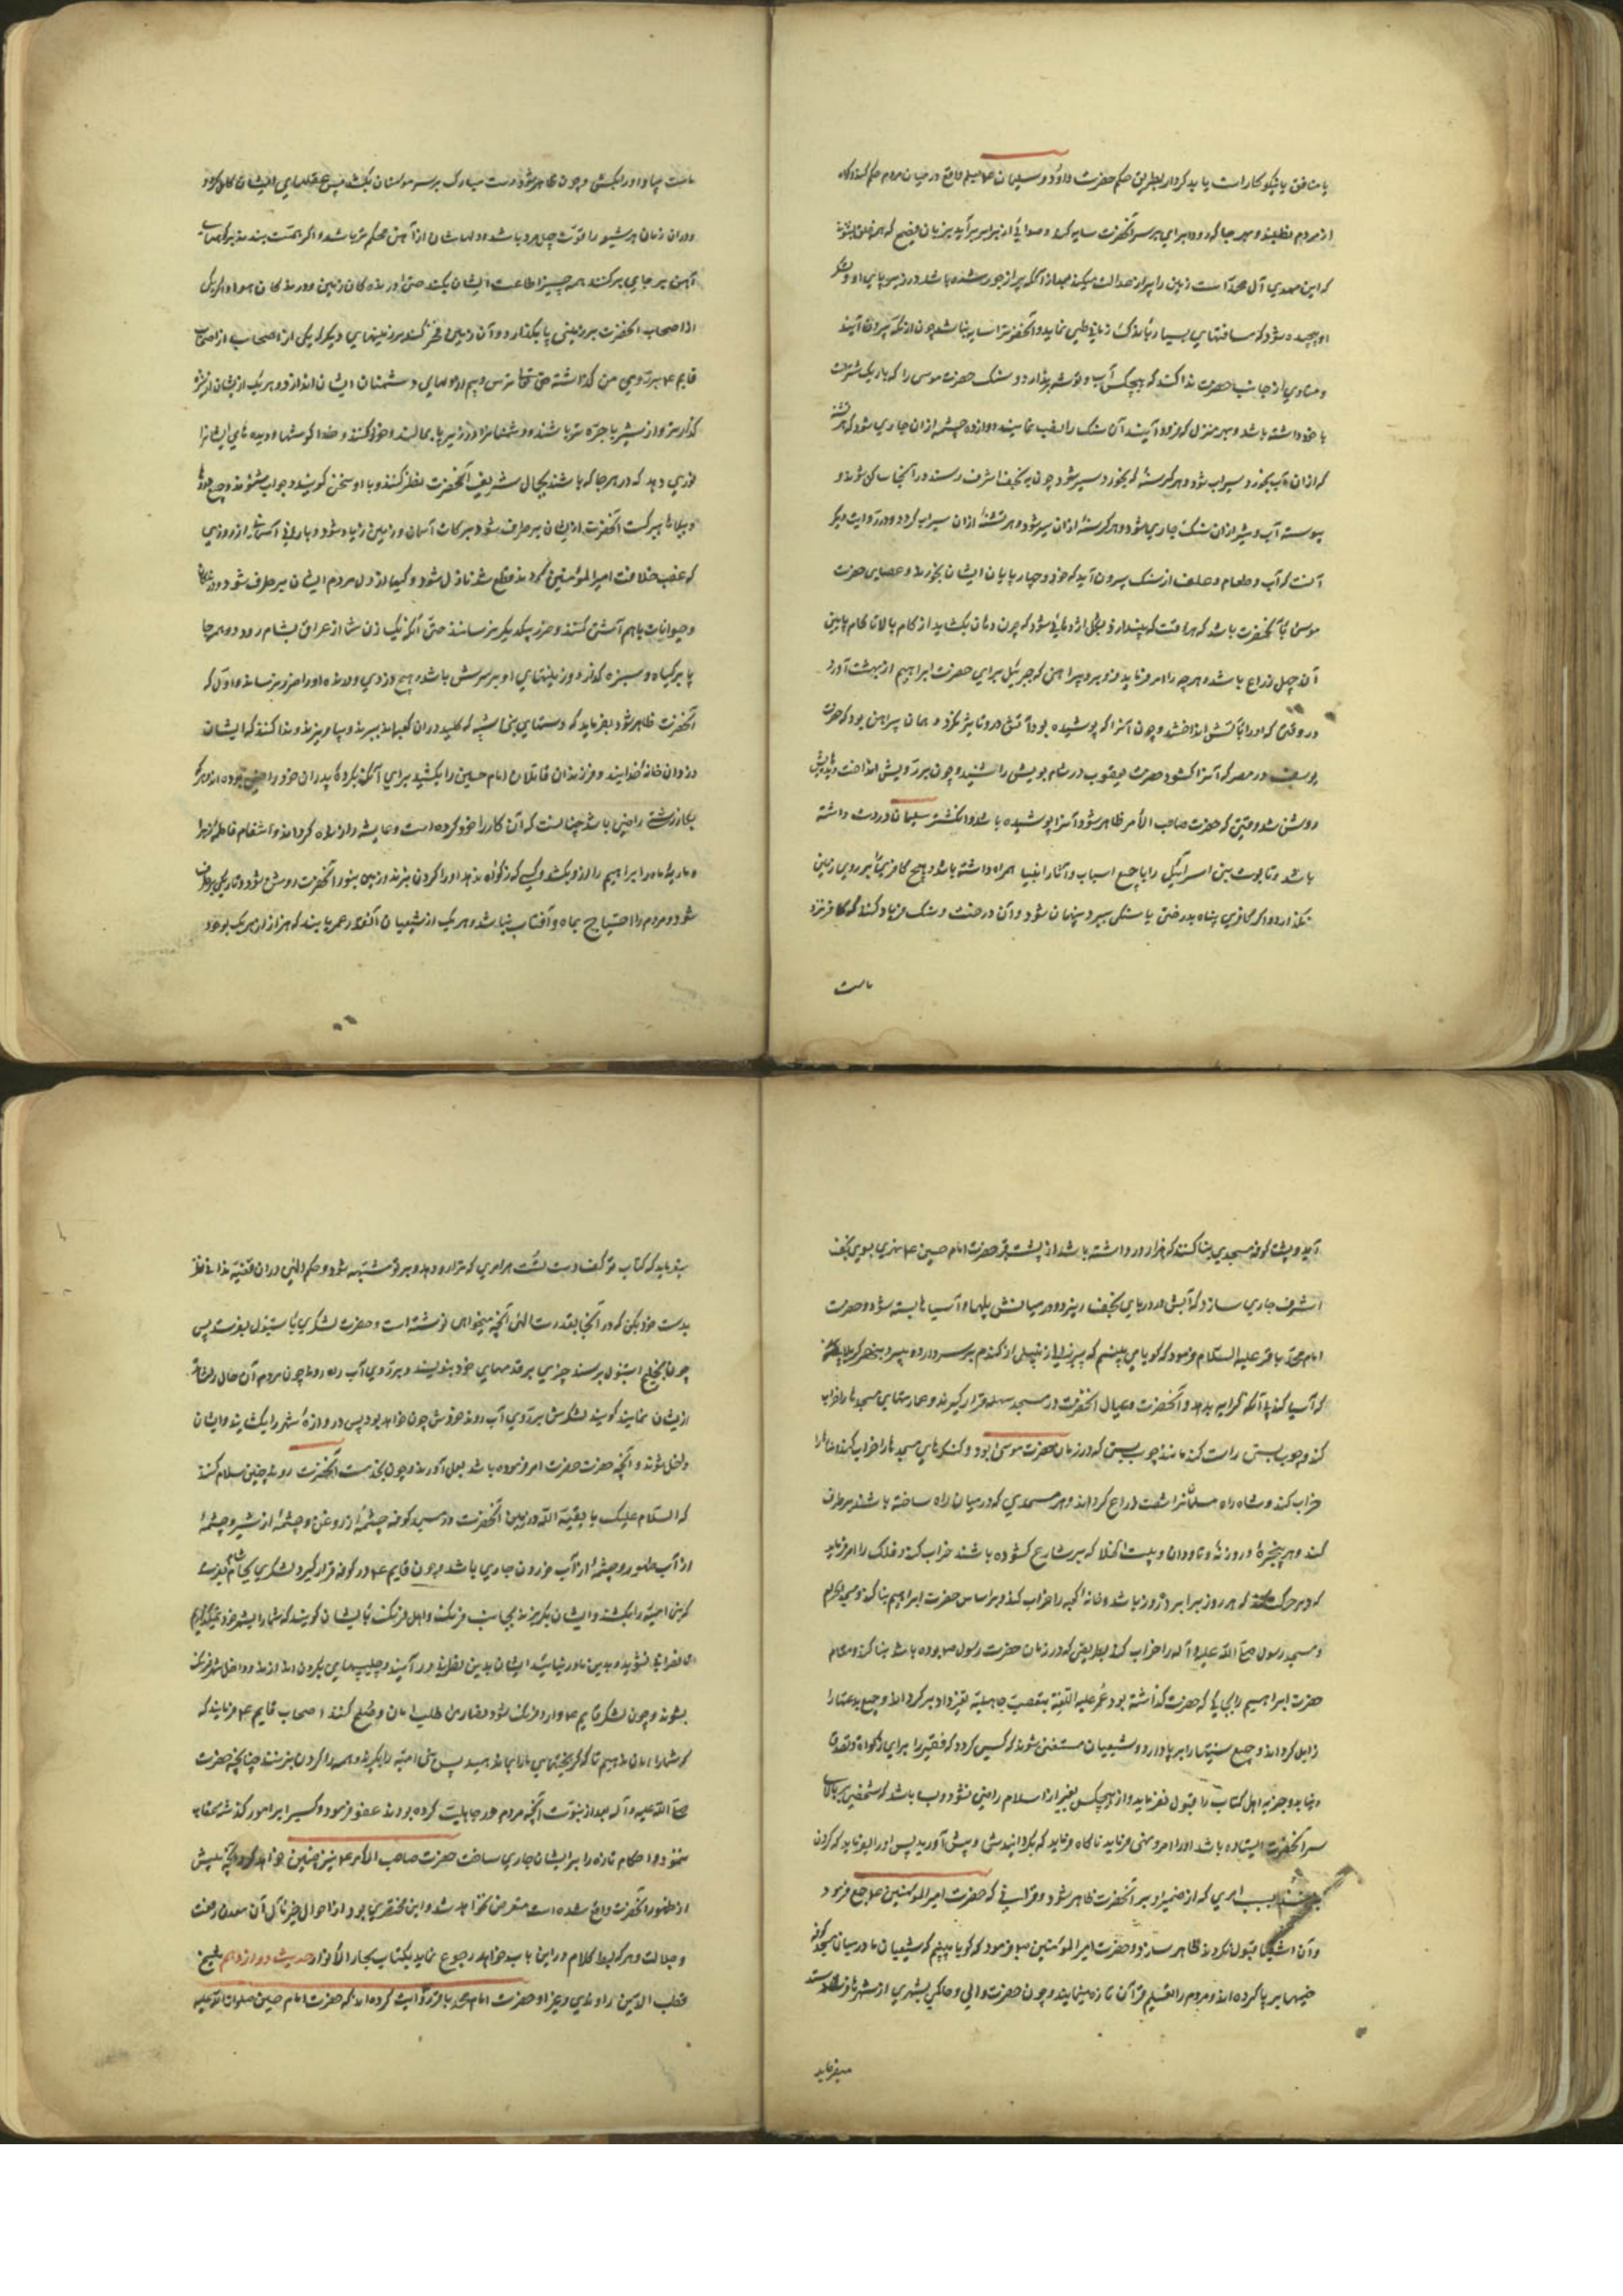 یا منافق یا نیکوکار است یا بد کردار بطریق حکم حضرت داود و سلیمان ع م بعلم واقع در میان مردم حکم کند و کواه
از مردم نطلبد و بهر جا که رود ابری بر سر آنحضرت سایه کند و صدائی از ان ابر برآید بزبان فصیح که همه خلق بشنوند
که این مهدی آل محمد است زمین را پر از عدالت میکند بعد از آنکه پر از جور شده باشد و زمین و پای او و لشکر
او پیچیده شود که مسافتهای بسیار باندک زمانی طی نماید و آنحضرت را سایه نباشد چون از مکه بیرون آیند
و منادی از جانب حضرت ندا کند که هیچکس آب و توشه برندارد و سنک حضرت موسی را که بار یک شتر است
با خود داشته باشد و بهر منزل که فرود آیند آن سنک را نصب نمایند دوازده چشمه از ان جاری شود که هر تشنه
که از ان آب بخورد سیراب شود و هر کرسنه که بخورد سیر شود چون به نجف اشرف رسند در آنجا ساکن شوند و
پیوسته آب و شیر از ان سنک جاری شود و هر کرسنه از ان سیر شود و هر تشنه از ان سیراب کردد و در روایت دیکر
آنست که آب و طعام و علف از سنک بیرون آید که خود و چارپایان ایشان بخورند و عصای حضرت
موسی با آنحضرت باشد که هر وقت که بیندازد بشکل اژدهائی شود که چون دهان بکشاید از کام بالا تا کام پایین
آن چهل ذراع باشد و هر چه را امر فرماید فرو برد و پیراهنی که جبرئیل برای حضرت ابراهیم از بهشت آورد
در وقتی که او را بآتش انداختند و چون آنرا پوشیده بود آتش در او تاثیر نکرد و همان پیراهن بود که حضرت
یوسف در مصر که آنرا کشود حضرت یعقوب در شام بویش را شنید و چون بر رویش انداخت دیده‌اش
روشن شد وقتی که حضرت صاحب الأمر ظاهر شود آنرا پوشیده باشد و انکشتر سلیمان در دست داشته
باشد و تابوت بنی اسرائیل را با جمیع اسباب و آثار انبیا همراه داشته باشد و هیچ کافری را بر روی زمین
نکذارد و اکر کافری پناه بدرختی یا سنکی ببرد و پنهان شود آن درخت و سنک فریاد کند که کافر نزد
ماست
ماست بیا و او را بکش و چون ظاهر شود دست مبارک بر سر مومنان بکشد پس عقلهای ایشان کامل کردد
و در ان زمان هر شیعه را قوت چهل مرد باشد و دلهاشان از آهن محکم‌تر باشد و اکر همت بندند بر کوههای
آهن از جای برکنند همه چیز اطاعت ایشان بکند حتی درندکان زمین و درندکان هوا و اکر یکی
از اصحاب آنحضرت بر زمینی پا بکذارد و آن زمین فخر کند بر زمینهای دیکر که یکی از اصحاب
قایم ع م بر روی من کذاشته حق تعالی ترس و بیم در دلهای دشمنان ایشان اندازد و هر یک از ایشان از نیزه
کذارنده‌تر و از شیر با جرءه‌تر باشند و دشمنان را در زیر پا بمالند و خدا کوشها و دیده‌های ایشانرا
نوری دهد که در هر جا که باشند بجمال شریف آنحضرت نظر کنند و با او سخن کویند و جواب بشنوند و جمیع دردها
و بلاها ببرکت آنحضرت از ایشان برطرف شود و برکات آسمان و زمین زیاد شود و بارانی از روزی
که غصب خلافت امیر المؤمنین کردند قطع شد نازل شود و کینها از دل مردم ایشان برطرف شود و درندکان
و حیوانات باهم آشتی کنند و ضرر بیکدیکر نرسانند حتی آنکه یک زن تنها از عراق بشام رود و بهر جا
پا بر کیاه و سبزه کذارد و زینتهای او بر سرش باشد و هیچ دزدی و درنده او را ضرر نرساند و اول که
آنحضرت ظاهر شود بفرماید که دستهای بنی شیبه که کلیدداران کعبه‌اند ببرند و بیاویزند و ندا کنند که ایشان
دزدان خانه خدایند و فرزندان قاتلان امام حسین را بکشند برای آنکه بکرده پدران خود راضی بوده‌اند و هر که
بکار زشتی راضی باشد چنانست که آن کار را خود کرده است و عایشه را زنده کرداند و انتقام فاطمه زهرا
و ماریه مادر ابراهیم را از او بکشد و کسی که زکوة ندهد او را کردن بزند و زمین بنور آنحضرت روشن شود و تاریکی برطرف
شود و مردم را احتیاج بماه و آفتاب نباشد و هر یک از شیعیان آنقدر عمر یابند که هزار از هر یک بوجود
آید و پشت کوفه مسجدی بنا کند که هزار در داشته باشد از پشت قبر حضرت امام حسین ع م نهری بسوی نجف
اشرف جاری سازد که آبش در دریای نجف ریزد و در میانش پلها و آسیاها بسته شود و حضرت
امام محمد باقر علیه السلام فرمود که کویا می‌بینم که پیرزالی زنبیلی از کندم بر سر دارد میبرد بنهر کربلا
که آسیا کند بی آنکه کرایه بدهد و آنحضرت و عیال آنحضرت در مسجد سهله قرار کیرند و عمارتهای مسجدها را خراب
کند و چوب بستی راست کند مانند چوب بستی که در زمان حضرت موسی بود و کنکره‌های مسجدها را خراب کند
خراب کند و شاه راه مسلمانان را شصت ذراع کرداند و هر مسجدی که در میان راه ساخته باشند برطرف
کند و هر پنجره و روزنه و ناودان و بیت الخلا که بر شارع کشوده باشند خراب کند و فلک را امر فرماید
که در حرکت کند که هر روز برابر ده روز باشد و خانه کعبه را خراب کند و بر اساس حضرت ابراهیم بنا کند و مسجد الحرام
و مسجد رسول صلی الله علیه و آله را خراب کند بطریقی که در زمان حضرت رسول ص بوده باشد بنا کند و مقام
حضرت ابراهیم را بجایی که حضرت کذاشته بود عمر علیه اللعنة بتعصب جاهلیة تغیر داد برکرداند و جمیع بدعتها را
زایل کرداند و جمیع سنتها را برپا دارد و شیعیان مستغنی شوند که کسی کردد که فقیر را برای زکواة و تصدق
و نیابد و جزیه اهل کتاب را قبول نفرماید و از هیچکس بغیر از اسلام راضی نشود و بسا باشد که شخصی بر بالای
سر آنحضرت ایستاده باشد او را امر و نهی فرماید ناکاه فرماید که برکردانیدش و پیش آورید پس او را بفرماید که کردن
بزنند بسبب امری که از ضمیر او بر آنحضرت ظاهر شود و قرآنی که حضرت امیر المؤمنین ع م جمع فرمود
و آن اشقیا قبول نکردند ظاهر سازد و حضرت امیر المؤمنین ص فرمود که کویا می‌بینم که شیعیان ما در میان مسجد کوفه
خیمها برپا کرده‌اند و مردم را تعلیم قرآن تازه مینمایند و چون حضرت والی و حاکمی بشهری از شهرها فرستد
میفرماید
میفرماید که کتاب تو کف دست تست هر امری که ترا رو دهد و بر تو مشتبه شود و حکم الهی در ان قضیه ندانی نظر
بدست خود بکن که در آنجا بقدرت الهی آنچه میخواهی نوشته است و حضرت لشکری باستنبول بفرستد پس
چون بخلیج استنبول برسند چیزی بر قدمهای خود بنویسند و بر روی آب راه روند چون مردم آن حال را مشاهده
از ایشان نمایند کویند لشکرش بر روی آب روند خودش چون خواهد بود پس دروازه شهر را بکشایند و ایشان
داخل شوند و آنچه حضرت امر فرموده باشد بعمل آورند و چون بخدمت آنحضرت روند چنین سلام کنند
که السلام علیک یا بقیة الله در زمین آنحضرت در مسجد کوفه چشمه از روغن و چشمه از شیر و چشمه
از آب طهور و چشمه از آب خوردن جاری باشد و چون قایم ع م در کوفه قرار کیرد لشکری بجانب شام بفرستد
که بنی امیه را بکشند و ایشان بکریزند بجانب فرنک و اهل فرنک بایشان کویند که شما را بشهر خود نمیکذاریم
تا نصرانی نشوید و بدین ما در نیایید ایشان بدین نصاری درآیند و چلیپهای بکردن اندازند و داخل شهر فرنک
بشوند و چون لشکر قایم ع م وارد فرنک شود نصاری طلب امان و صلح کنند اصحاب قایم ع م فرمایند که
که شما را امان ندهیم تا که کریختهای ما را بما ندهید پس بنی امیه را بکیرند و همه را کردن بزنند چنانچه حضرت
صلی الله علیه و آله بعد از نبوت آنچه مردم در جاهلیت کرده بودند عفو فرمود و کسی را بر امور کذشته عقاب
ننمود و احکام تازه را بر ایشان جاری ساخت حضرت صاحب الأمر ع م نیز چنین خواهد کرد و بآنچه پیش
از ظهور آنحضرت واقع شده است متعرض نخواهد شد و این مختصری بود از احوال خیر مآل آن معدن رفعت
و جلالت و هر که بسط کلام در این باب خواهد رجوع نماید بکتاب بحار الانوار حدیث دوازدهم شیخ
قطب الدین راوندی و غیر او حضرت امام محمد باقر روایت کرده‌اند که حضرت امام حسین صلوات الله علیه